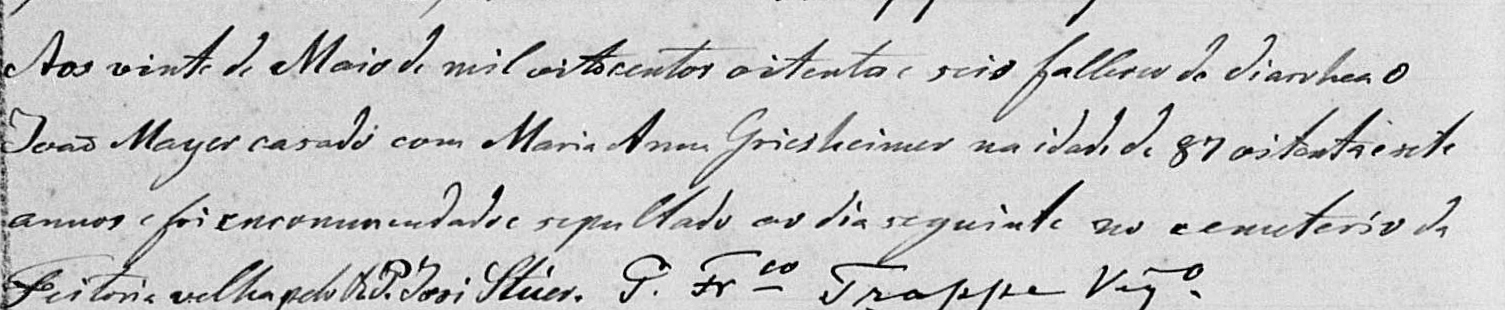 Aos vinte de Maio de mil oitocentos oitenta e seis falleceu de diarrhea o
João Mayer casado com Maria Anna Griesheimer na idade de 87 oitenta e sete
annos e foi encommendado e sepultado ao dia seguinte no cemeterio da
Feitoria velha pelo R. P. José Stüer. P. Fr^co Trappe Vig^o.